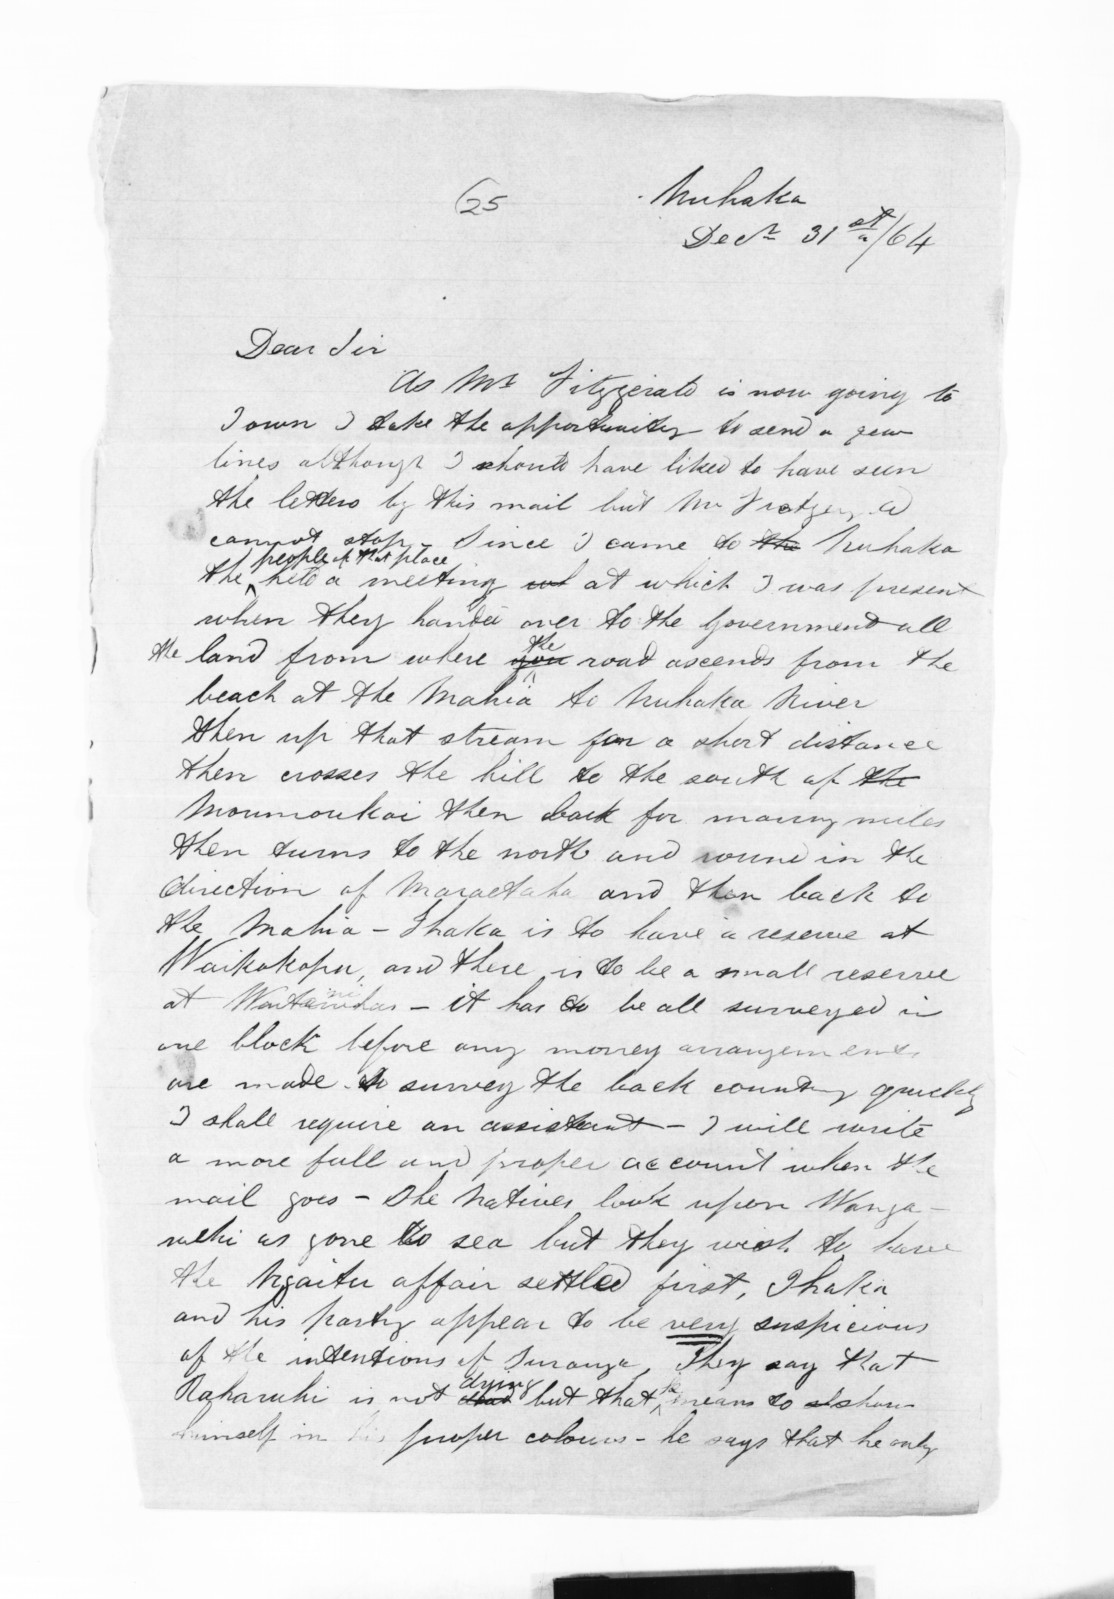 25
Nuhaka
Decr 31st/64
Dear Sir
As Mr Fitzgerald is now going to
Town I take the opportunity to send a few
lines although I should have liked to have seen
the letters by this mail but Mr
cannot stop - Since I came to the Nuhaka
people of that place
the held a meeting at which I was present
when they handed over to the Government all
the
the land from where you road ascends from the
beach at the Mahia to Nuhaka River
then up that stream for a short distance
then crosses the hill to the south of the
Moumoukai then back for many miles
then turns to the north and round in the
direction of Maraetaha and then back to
the Mahia - Ihaka is to have a reserve at
Waikokopu, and there is to be a small reserve
at - it has to be all surveyed in
one block before any money arrangements
are made. To survey the back country quickly
I shall require an assistant - I will write
a more full and proper account when the
mail goes - The Natives look upon Wanga-
wehi as gone to sea but they wish to have
the Ngaitu affair settled first, Ihaka
and his party appear to be very suspicious
of the intentions of Turanga, They say that
dying he
Raharuhi is not but that means to show
himself in his proper colours - he says that he only